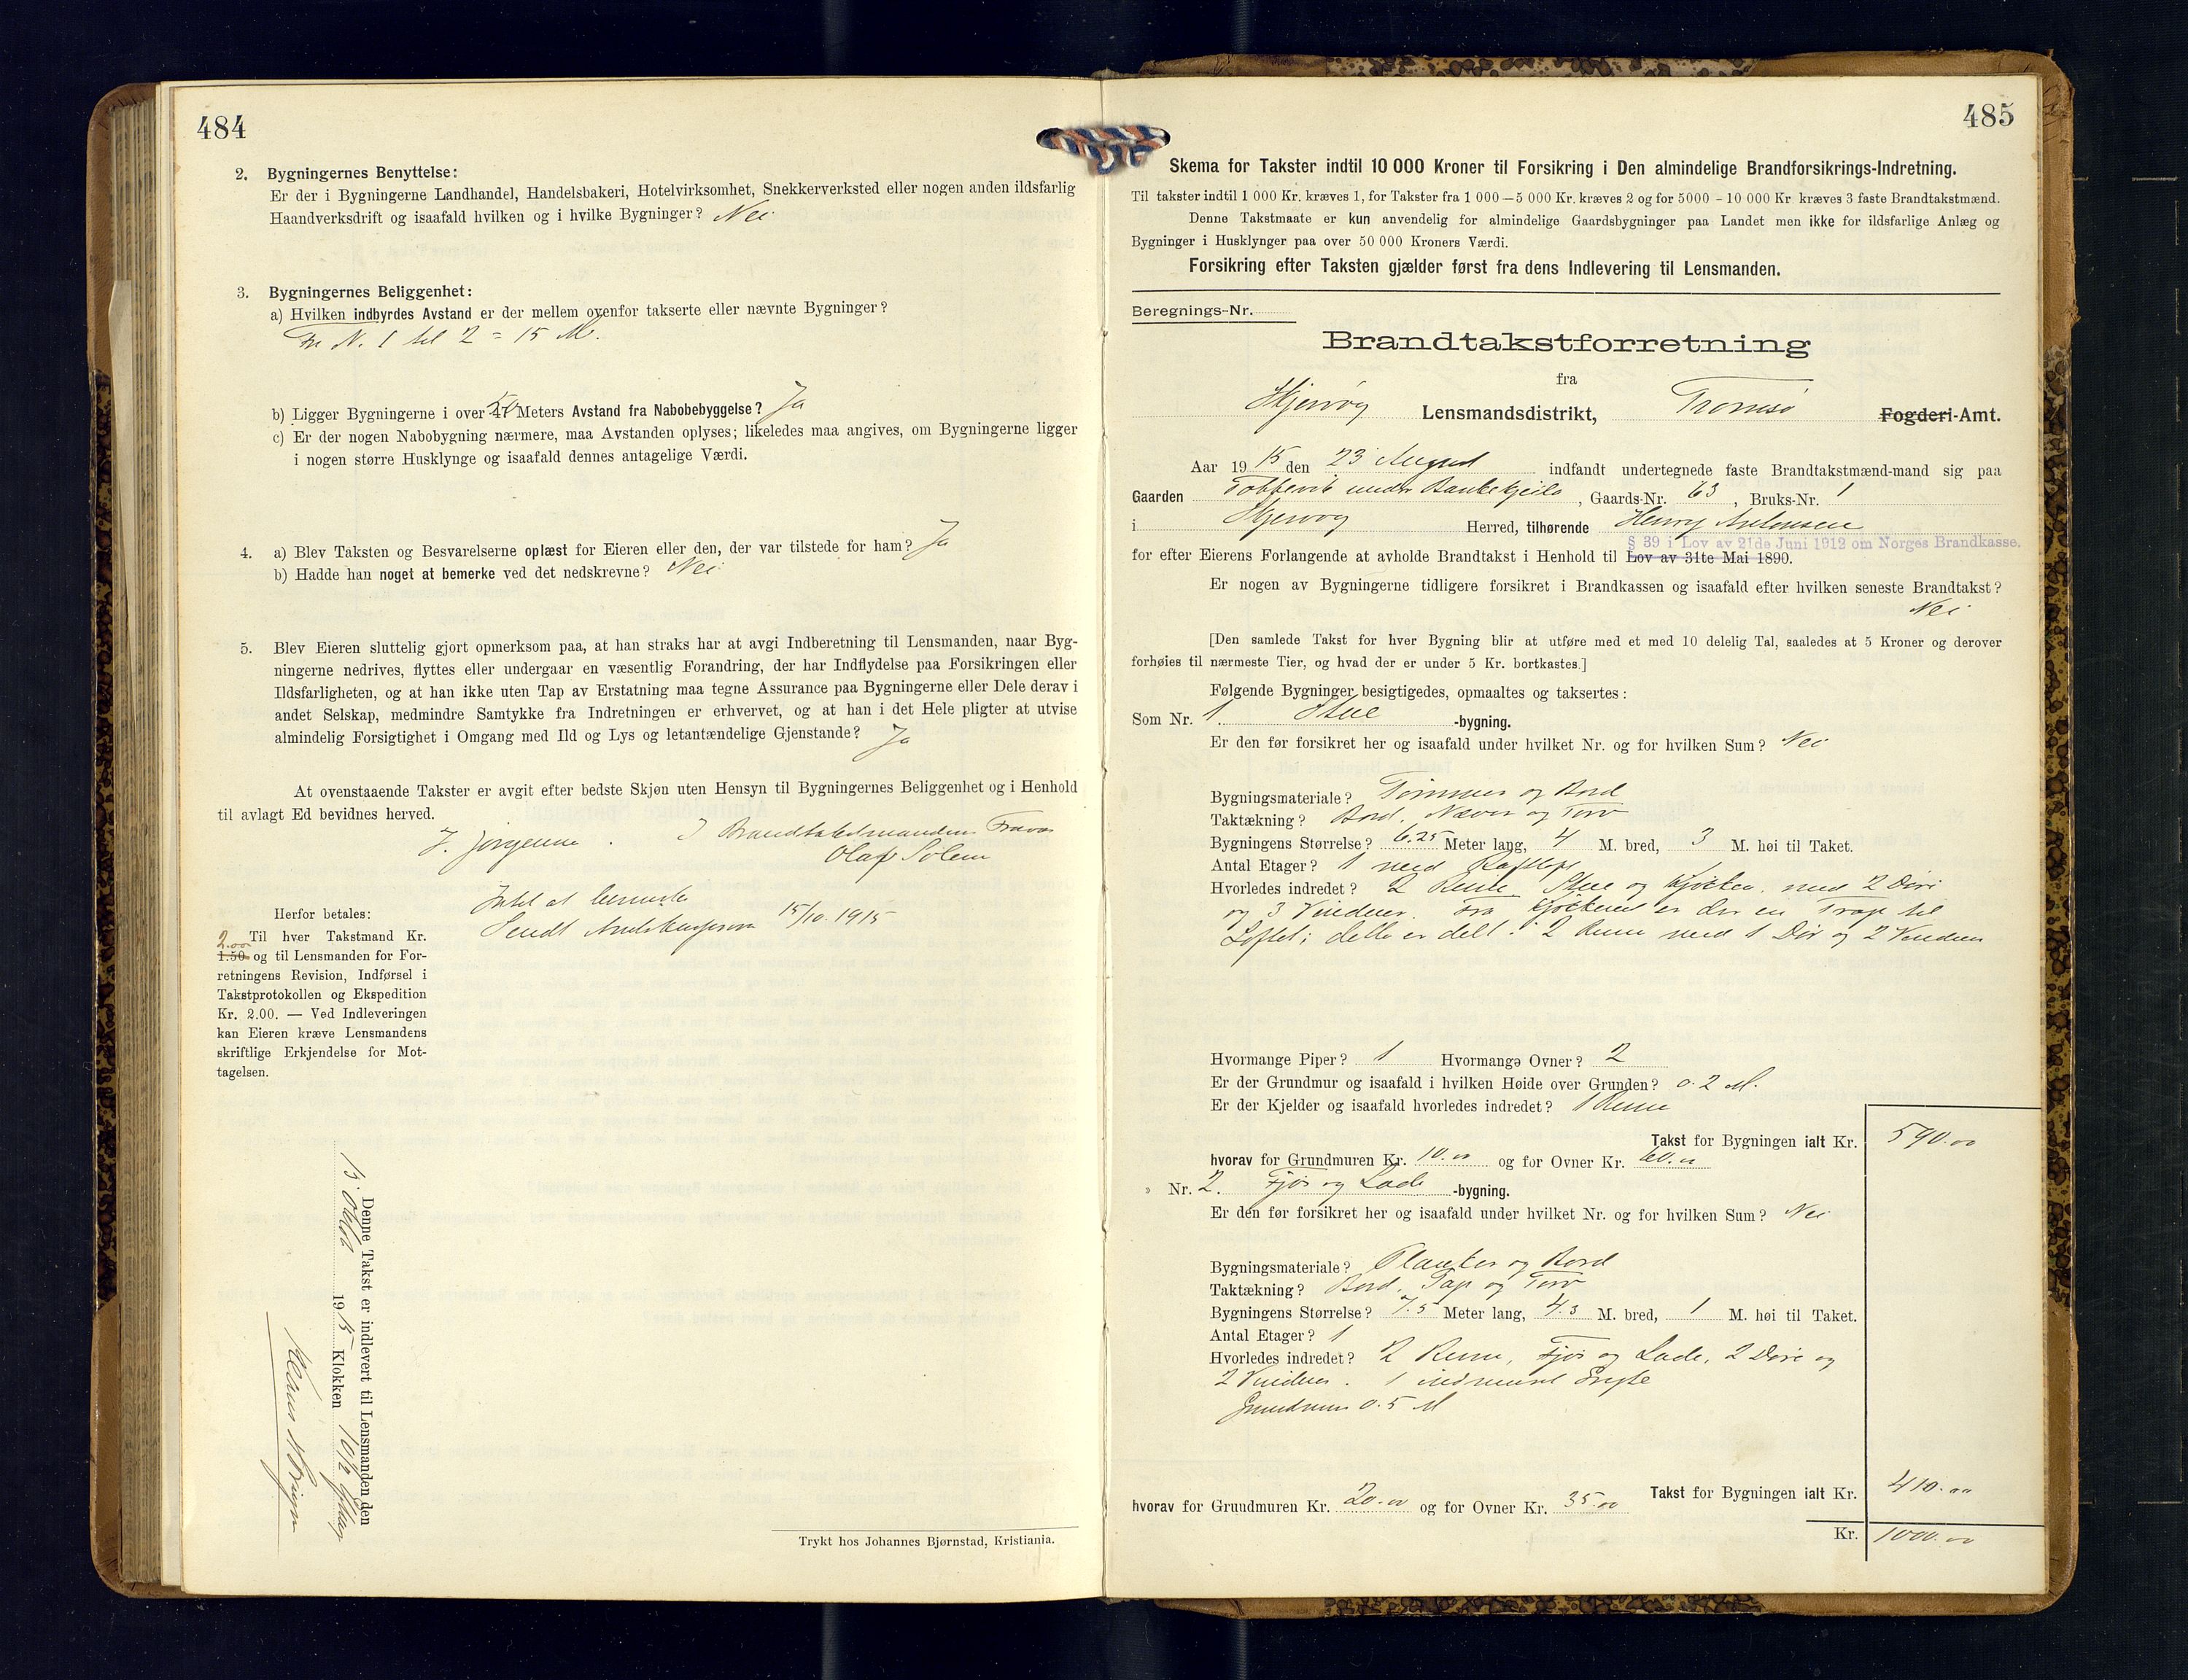 484
2. Bygningernes Benyttelse:
Er der i Bygningerne Landhandel, Handelsbakeri, Hotelvirksomhet, Snekkerverksted eller nogen anden ildsfarlig
Haandverksdrift og isaafald hvilken og i hvilke Bygninger? Nei
3. Bygningernes Beliggenhet:
a) Hvilken indbyrdes Avstand er der mellem ovenfor takserte eller nævnte Bygninger?
Fra N. 1 til 2 = 15 M.
b) Ligger Bygningerne i over 50 47 Meters Avstand fra Nabobebyggelse? Ja
c) Er der nogen Nabobygning nærmere, maa Avstanden oplyses; likeledes maa angives, om Bygningerne ligger
i nogen større Husklynge og isaafald dennes antagelige Værdi.
4. a) Blev Taksten og Besvarelserne oplæst for Eieren eller den, der var tilstede for ham? Ja
b) Hadde han noget at bemerke ved det nedskrevne? Nei
5. Blev Eieren sluttelig gjort opmerksom paa, at han straks har at avgi Indberetning til Lensmanden, naar Byg-
ningerne nedrives, flyttes eller undergaar en væsentlig Forandring, der har Indflydelse paa Forsikringen eller
Ildsfarligheten, og at han ikke uten Tap av Erstatning maa tegne Assurance paa Bygningerne eller Dele derav i
andet Selskap, medmindre Samtykke fra Indretningen er erhvervet, og at han i det Hele pligter at utvise
almindelig Forsigtighet i Omgang med Ild og Lys og letantændelige Gjenstande? Ja
At ovenstaaende Takster er avgit efter bedste Skjøn uten Hensyn til Bygningernes Beliggenhet og i Henhold
til avlagt Ed bevidnes herved.
J. Jørgensen. I Brandtakstmandens Fravær
Olaf Solem
Intet at bemerke
Sendt 15/10.1915
Herfor betales:
2.00 Til hver Takstmand Kr.
1.50 og til Lensmanden for For-
retningens Revision, Indførsel i
Takstprotokollen og Ekspedition
Kr. 2.00. — Ved Indleveringen
kan Eieren kræve Lensmandens
skriftlige Erkjendelse for Mot-
tagelsen.
Denne Takst er indlevert til Lensmanden den
13 Oktbr 1915 Klokken 10 1/2
Trykt hos Johannes Bjørnstad, Kristiania.
485
Skema for Takster indtil 10 000 Kroner til Forsikring i Den almindelige Brandforsikrings-Indretning.
Til takster indtil 1 000 Kr. kræves 1, for Takster fra 1 000—5 000 Kr. kræves 2 og for 5000 - 10 000 Kr. kræves 3 faste Brandtakstmænd.
Denne Takstmaate er kun anvendelig for almindelige Gaardsbygninger paa Landet men ikke for ildsfarlige Anlæg og
Bygninger i Husklynger paa over 50 000 Kroners Værdi.
Forsikring efter Taksten gjælder først fra dens Indlevering til Lensmanden.
Beregnings-Nr.
Brandtakstforretning
fra
Skjervøy Lensmandsdistrikt, Tromsø Fogderi-Amt.
Aar 1915 den 23 August indfandt undertegnede faste Brandtakstmænd-mand sig paa
Gaarden under , Gaards-Nr. 63, Bruks-Nr. 1
i Skjervøy Herred, tilhørende Henry Antonsen
§ 39 i Lov av 21de Juni 1912 om Norges Brandkasse.
for efter Eierens Forlangende at avholde Brandtakst i Henhold til Lov av 31te Mai 1890.
Er nogen av Bygningerne tidligere forsikret i Brandkassen og isaafald efter hvilken seneste Brandtakst?
Nei
[Den samlede Takst for hver Bygning blir at utføre med et med 10 delelig Tal, saaledes at 5 Kroner og derover
forhøies til nærmeste Tier, og hvad der er under 5 Kr. bortkastes.]
Følgende Bygninger besigtigedes, opmaaltes og taksertes:
Som Nr. 1 Stue -bygning.
Er den før forsikret her og isaafald under hvilket Nr. og for hvilken Sum? Nei
Bygningsmateriale? Tømmer og Bord
Taktækning? Bord, Næver og Torv
Bygningens Størrelse? 6.25 Meter lang, 4 M. bred, 3 M. høi til Taket.
Antal Etager? 1 med
Hvorledes indredet? 2 Rume Stue og Kjøkken. med 2 Døre
og 3 Vinduer. Fra Kjøkkenet er der en Trap til
Loftet; dette er delt i 2 Rume med 1 Dør og 2 Vinduer
Hvormange Piper? 1 Hvormange Ovner? 2
Er der Grundmur og isaafald i hvilken Høide over Grunden? 0.2 M.
Er der Kjelder og isaafald hvorledes indredet? 1 Rume
Takst for Bygningen ialt Kr. 590.00
hvorav for Grundmuren Kr. 10.00 og for Ovner Kr. 60.00
» Nr. 2. Fjøs og Lade -bygning.
Er den før forsikret her og isaafald under hvilket Nr. og for hvilken Sum? Nei
Bygningsmateriale? Planker og Bord
Taktækning? Bord, Pap og Torv
Bygningens Størrelse? 7.5 Meter lang, 4.3 M. bred, 1 M. høi til Taket.
Antal Etager? 1
Hvorledes indredet? 2 Rume, Fjøs og Lade, 2 Døre og
2 Vinduer. 1 indmuret Gryte
Grundmur 0.5 M
Takst for Bygningen ialt Kr. 410.00
hvorav for Grundmuren Kr. 20.00 og for Ovner Kr. 35.00
Kr. 1000.00